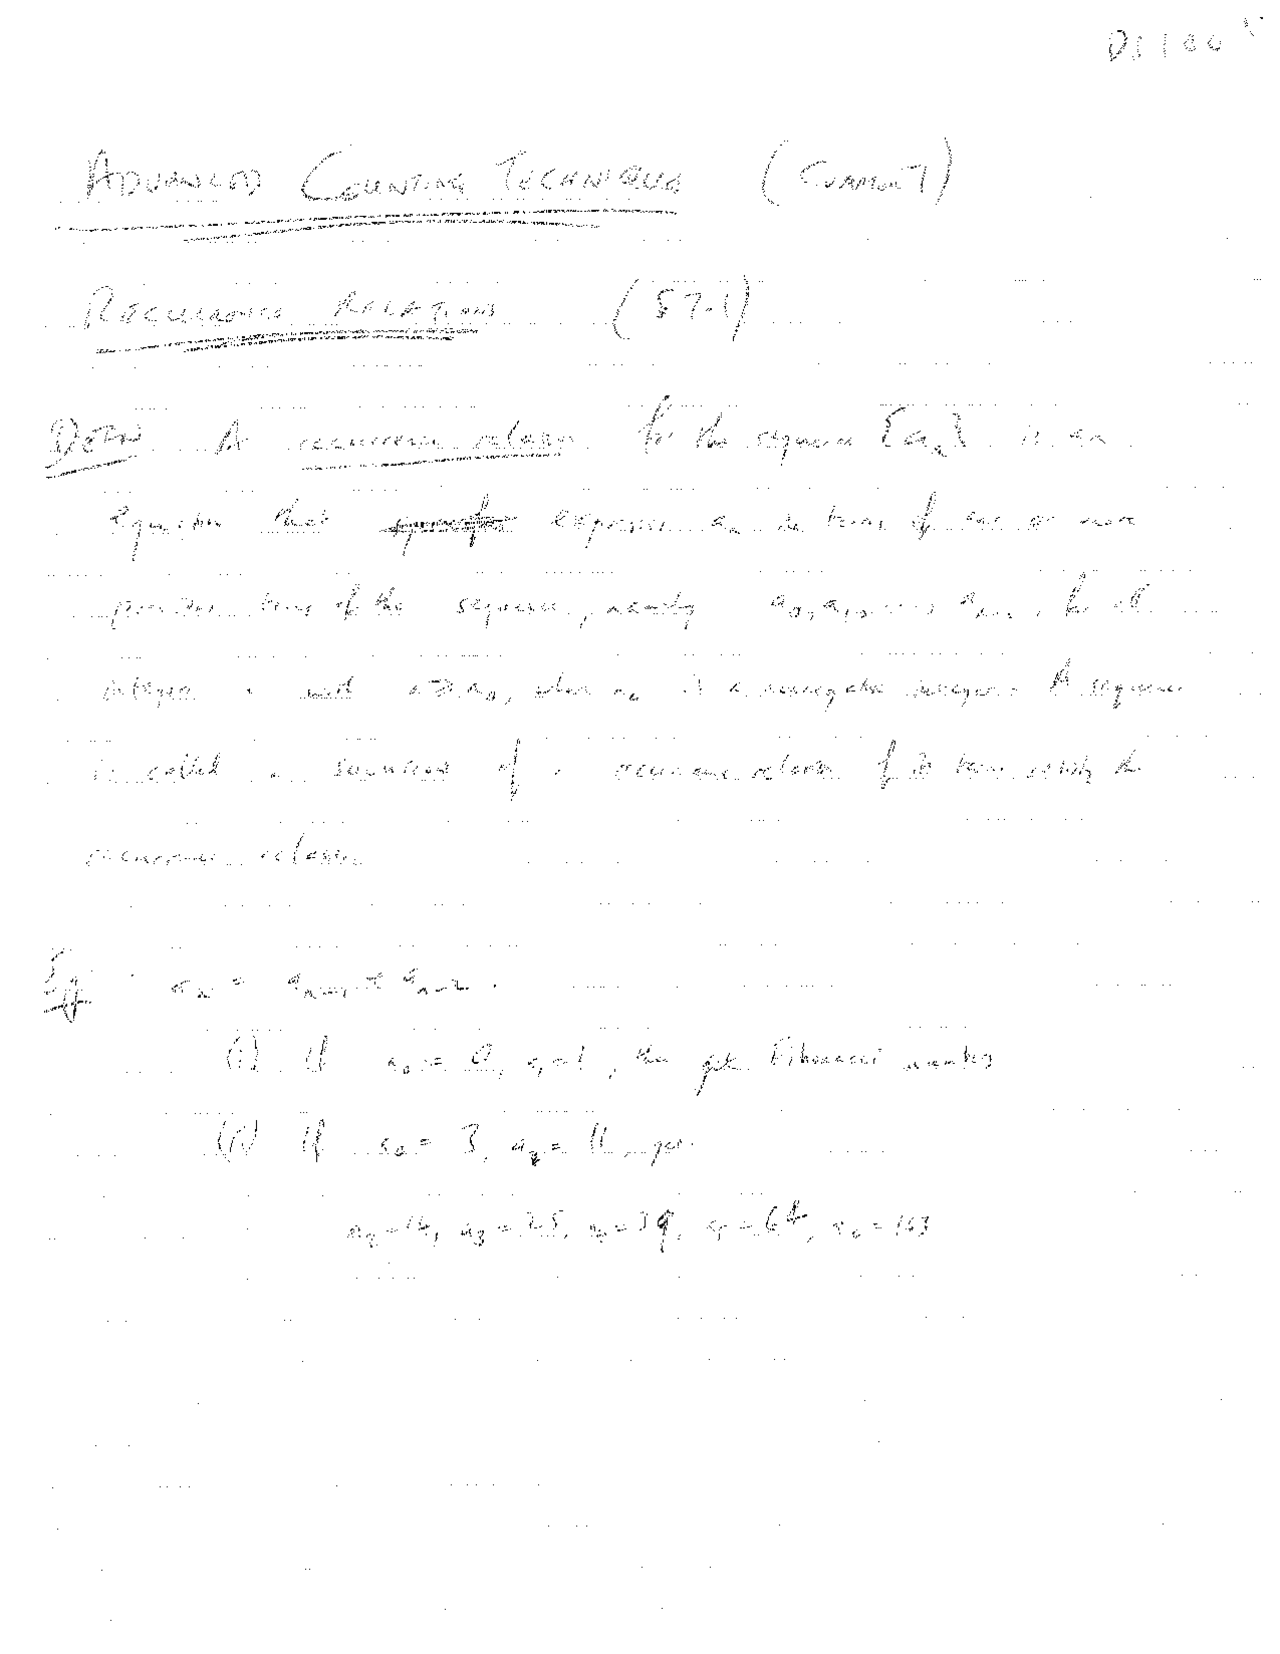 ADVANCED COUNTING TECHNIQUES
RECURRENCE RELATIONS (§7.1)
DEFN A recurrence relation for the sequence {a_n} is an
equation that expresses a_n in terms of one or more
previous terms of the sequence, namely a_0, a_1, ..., a_{n-1}, for all
integers n with n ≥ n_0, where n_0 is a nonnegative integer. A sequence
is called a SOLUTION of a recurrence relation if its terms satisfy the
recurrence relation
Eg a_n = a_{n-1} + a_{n-2}.
(i) If a_0 = 0, a_1 = 1, then get Fibonacci numbers
(ii) If a_0 = 3, a_1 = 11, get
a_2 = 14, a_3 = 25, a_4 = 39, a_5 = 64, a_6 = 103